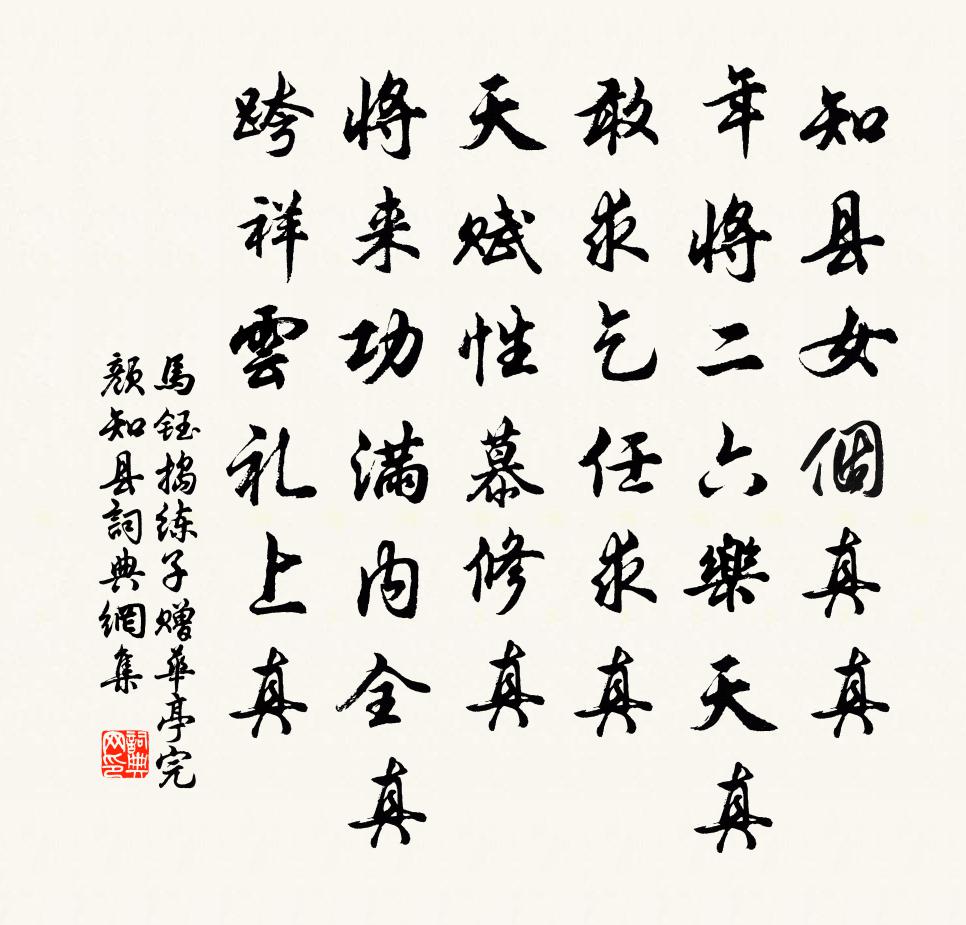 知县女個真真
年將二六樂天真
敢求乞任求真
天赋性慕修真
將来功满内全真
跨祥雲礼上真
馬鈺捣练子赠華亭完
顏知县詞典網集
詞典网印